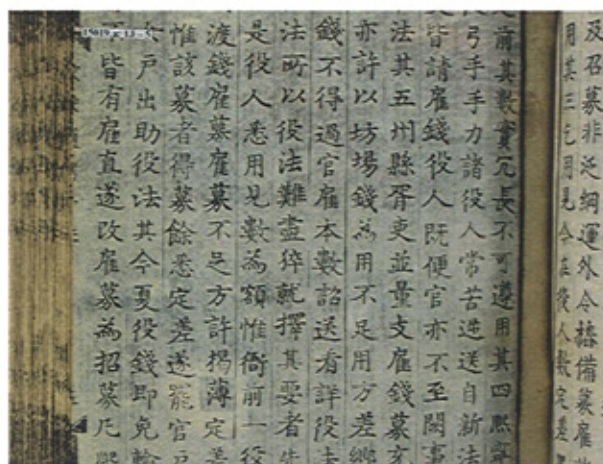 及召募非泛綱運外令樁備募雇
用其三乞用見今在役人數定差
前其數實冗長不可遵用其四熙寧
弓手手力諸役人常苦逓送自新法
皆請雇錢役人既便官亦不至闕事
法其五州縣胥吏並量支雇錢募充
亦許以坊場錢為用不足用方差鄉
錢不得過官雇本數詔送看詳役法
法所以役法難盡猝就擇其要者先
是役人悉用見數為額惟衙前一役
渡錢雇募雇募不足方許揭薄定差
惟該募者得募餘悉定差遂罷官戶
女戶出助役法其今夏役錢即免輸
皆有雇直遂改雇募為招募凡熙
15019 x 13 - 5